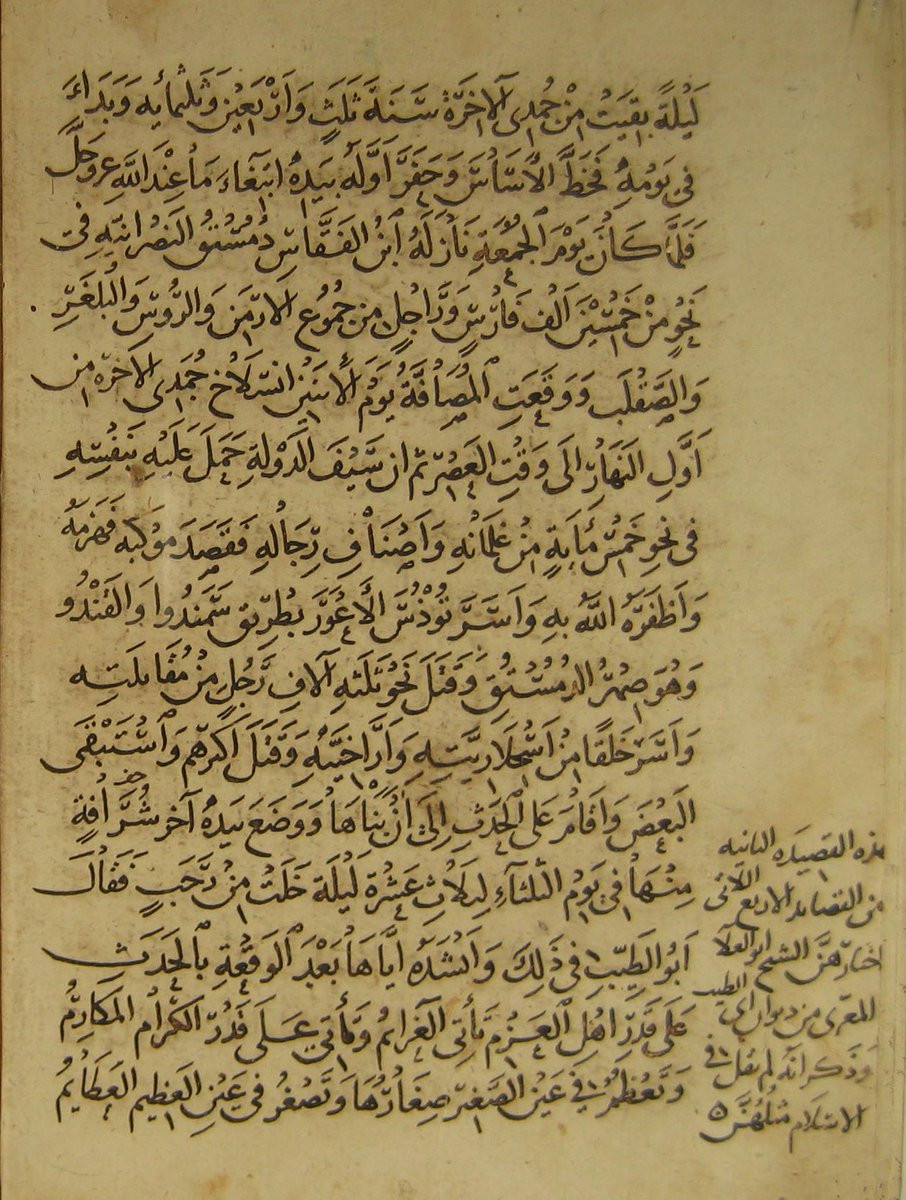 لَيْلَةً بَقِيَتْ مِنْ جُمْدى الآخِرَةُ سَنَةَ ثَلَثٍ وَأَرْبَعِيْنَ وَثَلْثمايه وَبَدَاءَ
فى يَوْمِهِ فَخَطَّ الأسَاسَ وَحَفَرَ أوَّلَهُ بِيَدِهُ ابْتِغَاءَ مَا عِنْدَ اللهِ عز وجلَّ
فَلَمَّا كَانَ يَوْمَ الجُمُعَةِ نَازَلَهُ ابْنُ الفَقَّاسِ دُمُسْتُقُ النَصْرَانيّهِ فى
نَحْوٍ مِنْ خَمْسِيْنَ ألْفَ فَارِسٍ وَرَاجِلٍ مِنْ جُمُوْعِ الارْمَنِ وَالرُّوْسِ وَالبُلْغَرِ
وَالصَّقْلَبِ وَوَقَعَتِ المُصَافَّةُ يَوْمَ الأثْنَيْنِ انسِلَاخَ جُمْدى الآخره من
أوَّلِ النَهَارِ الَى وَقْتِ العَصْرِ ثم ان سَيْفَ الدَوْلَةِ حَمَلَ عَلَيْهِ بِنَفْسِهِ
فى نحوِ خَمْسِ مِأيَةٍ مِنْ غِلمَانِهِ وَأصْنَافِ رِجَالِهِ فَقَصَدَ مَوْكبهُ فهَزَمَهُ
وَأظفَرَهُ اللهُ بِهِ وَأسَرَ تُوْذُسَ الأعْوَرَ بِطْرِيْق سَمَنْدُوا وَلقَنْدُو
وَهُوَ صِهْرُ الدمُسْتُقِ وَقَتَلَ نَحْوَ ثَلَثَهِ آلافِ رَجُلٍ مِنْ مُقَاتِلَتِهِ
وَأسَرَ خَلقًا مِنْ أسْحِلَارِيَّتِهِ وَأرَاخِيَّهِ وَقَتَلَ أكثرهم وَاسْتَبْقَى
البَعْضَ وَأقَامَ عَلَى الحَدَثِ إلىَ أنْ بَنَاهَا وَوَضَعَ بِيَدِهُ آخر شُرَّافَةٍ
مِنْهَا فى يَوْمِ الثلثآءِ لِثَلَاثِ عَشْرَةَ لَيْلَة خَلَتْ مِنْ رَجَبٍ فَقَالَ
أبُو الطَيِّبِ فى ذَلِكَ وَأنْشَدَهُ ايَّاهَا بَعْدَ الوَقْعَةِ بِالحَدَثِ
عَلَى قَدْرِ اهْلِ العَزْمِ تَأتِى العَزائمُ وَتَأتِى عَلَى قَدْرِ الكِرَامِ المَكَارِمُ
وَتَعْظمُ فى عَيْنِ الصَغيرِ صِغَارُهَا وَتَصْغُرُ فى عَيْنِ العَظِيمِ العَظَايُمُ
هذه القصيده الثانيه
من القصايد الاربع اللاتى
اختارهنَّ الشيخ ابو العلا
المعرى من ديوان ابى الطيب
وَذَكر انه لم يقل فى
الاسلام مثلهُنَّ